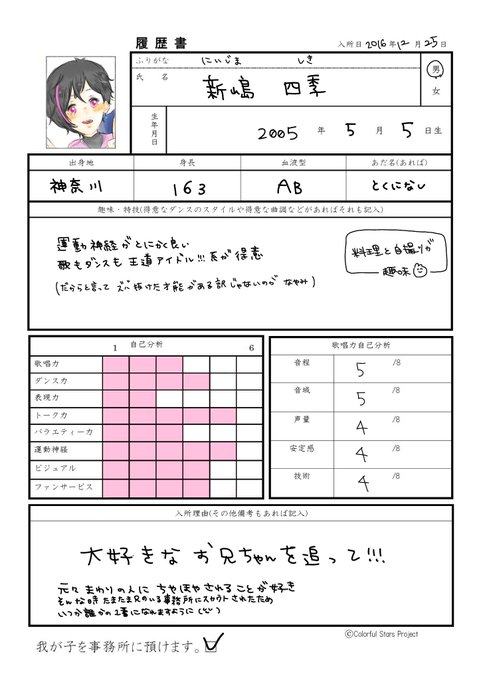 履歴書
入所日 2016年12月25日
ふりがな にいじま しき
氏名 新嶋 四季
男
女
生年月日 2005年 5月 5日生
出身地 身長 血液型 あだ名(あれば)
神奈川 163 AB とくになし
趣味・特技(得意なダンスのスタイルや得意な曲調などがあればそれも記入)
運動神経がとにかく良い
歌もダンスも王道アイドル!!!系が得意
(だからと言って ズバ抜けた才能がある訳じゃないのが なやみ)
料理と自撮りが
趣味
自己分析
1 6
歌唱力
ダンス力
表現力
トーク力
バラエティー力
運動神経
ビジュアル
ファンサービス
歌唱力自己分析
音程 5 /8
音域 5 /8
声量 4 /8
安定感 4 /8
技術 4 /8
入所理由(その他備考もあれば記入)
大好きな お兄ちゃんを追って!!!
元々 まわりの人に ちやほやされることが好き
そんな時 たまたま兄のいる事務所にスカウトされたため
いつか誰かの1番になれますように
©Colorful Stars Project
我が子を事務所に預けます。